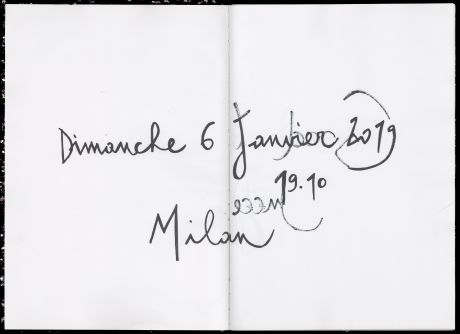 Dimanche 6 Janvier 2019
19.10
Milan